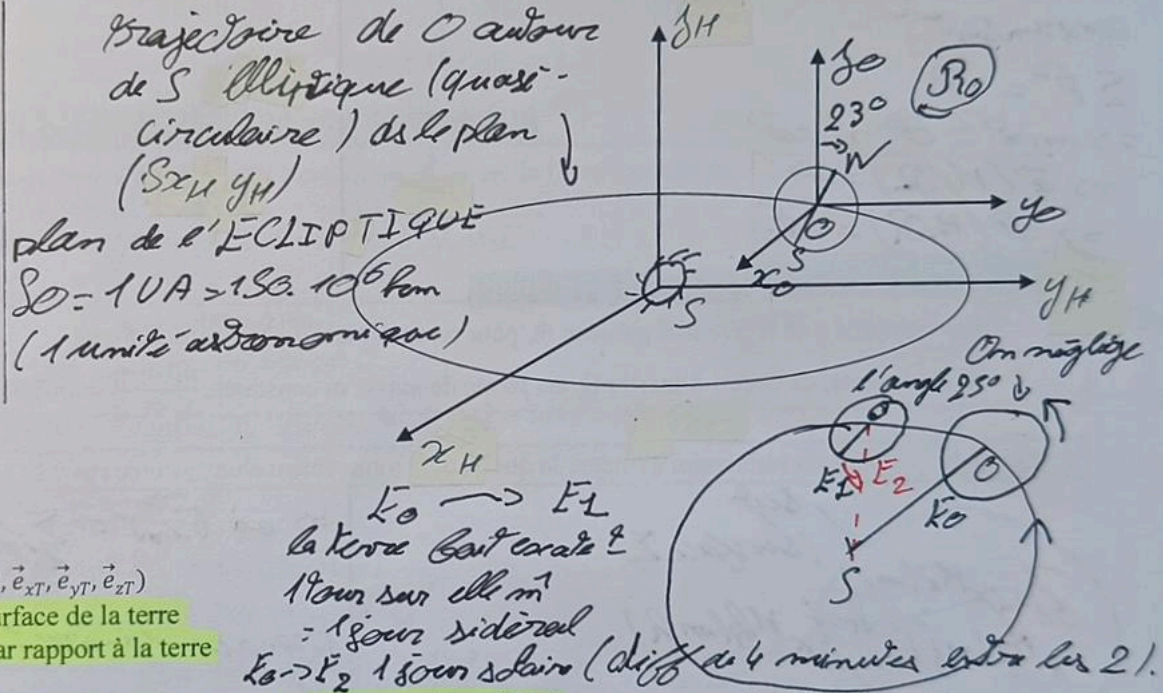 trajectoire de O autour
de S elliptique (quasi-
circulaire) ds le plan
(SxH yH)
plan de l'ECLIPTIQUE
SO = 1 UA = 150. 10⁶ km
(1 unité astronomique)
zH
zO
23°
R0
N
yO
O
S
xO
yH
S
xH
On néglige
l'angle 23°
O
E1
E2
O
E0
S
E0 → E1
la terre fait exactᵗ
1 tour sur elle m̂
= 1 jour sidéral
E0 -> E2 1 jour solaire (diff de 4 minutes entre les 2).
, e⃗xT, e⃗yT, e⃗zT)
urface de la terre
ar rapport à la terre